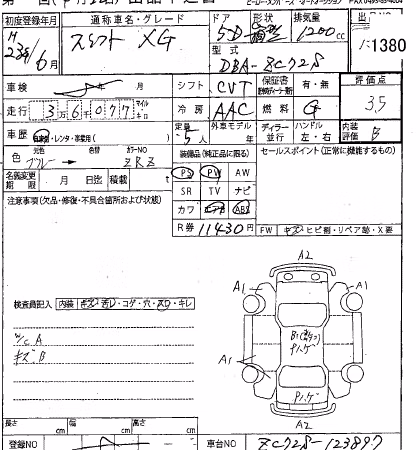 初度登録年月 通称車名・グレード ドア 形状 排気量 出
H23年6月 スイフト XG 5D 箱型 1200cc 1380
型式 DBA-ZC72S
車検 年 月 シフト CVT 保証書 有・無 評価点
走行 3万6千077 マイル キロ 冷房 AAC 燃料 G 3.5
車歴 自家用・レンタ・事業用( ) 定員 5人 外車モデル 年 ディーラー 並行 ハンドル 左・右 内装評価 B
色 元色 ブルー 色替 カラーNO ZRZ 装備品(純正品に限る) セールスポイント(正常に機能するもの)
名義変更期限 月 日迄 積載 t PS PW AW
SR TV ナビ
注意事項(欠品・修復・不具合箇所および状態) カワ エアB ABS
R券 11430円 FW キズ・ヒビ割・リペア跡・X要
A2
A1 A1
検査員記入 内装 キズ・汚レ・コゲ・穴・スレ・キレ
W/C A
キズ B
A1 A1
A2
長さ cm 幅 cm 高さ cm
登録NO 車台NO ZC72S-123897